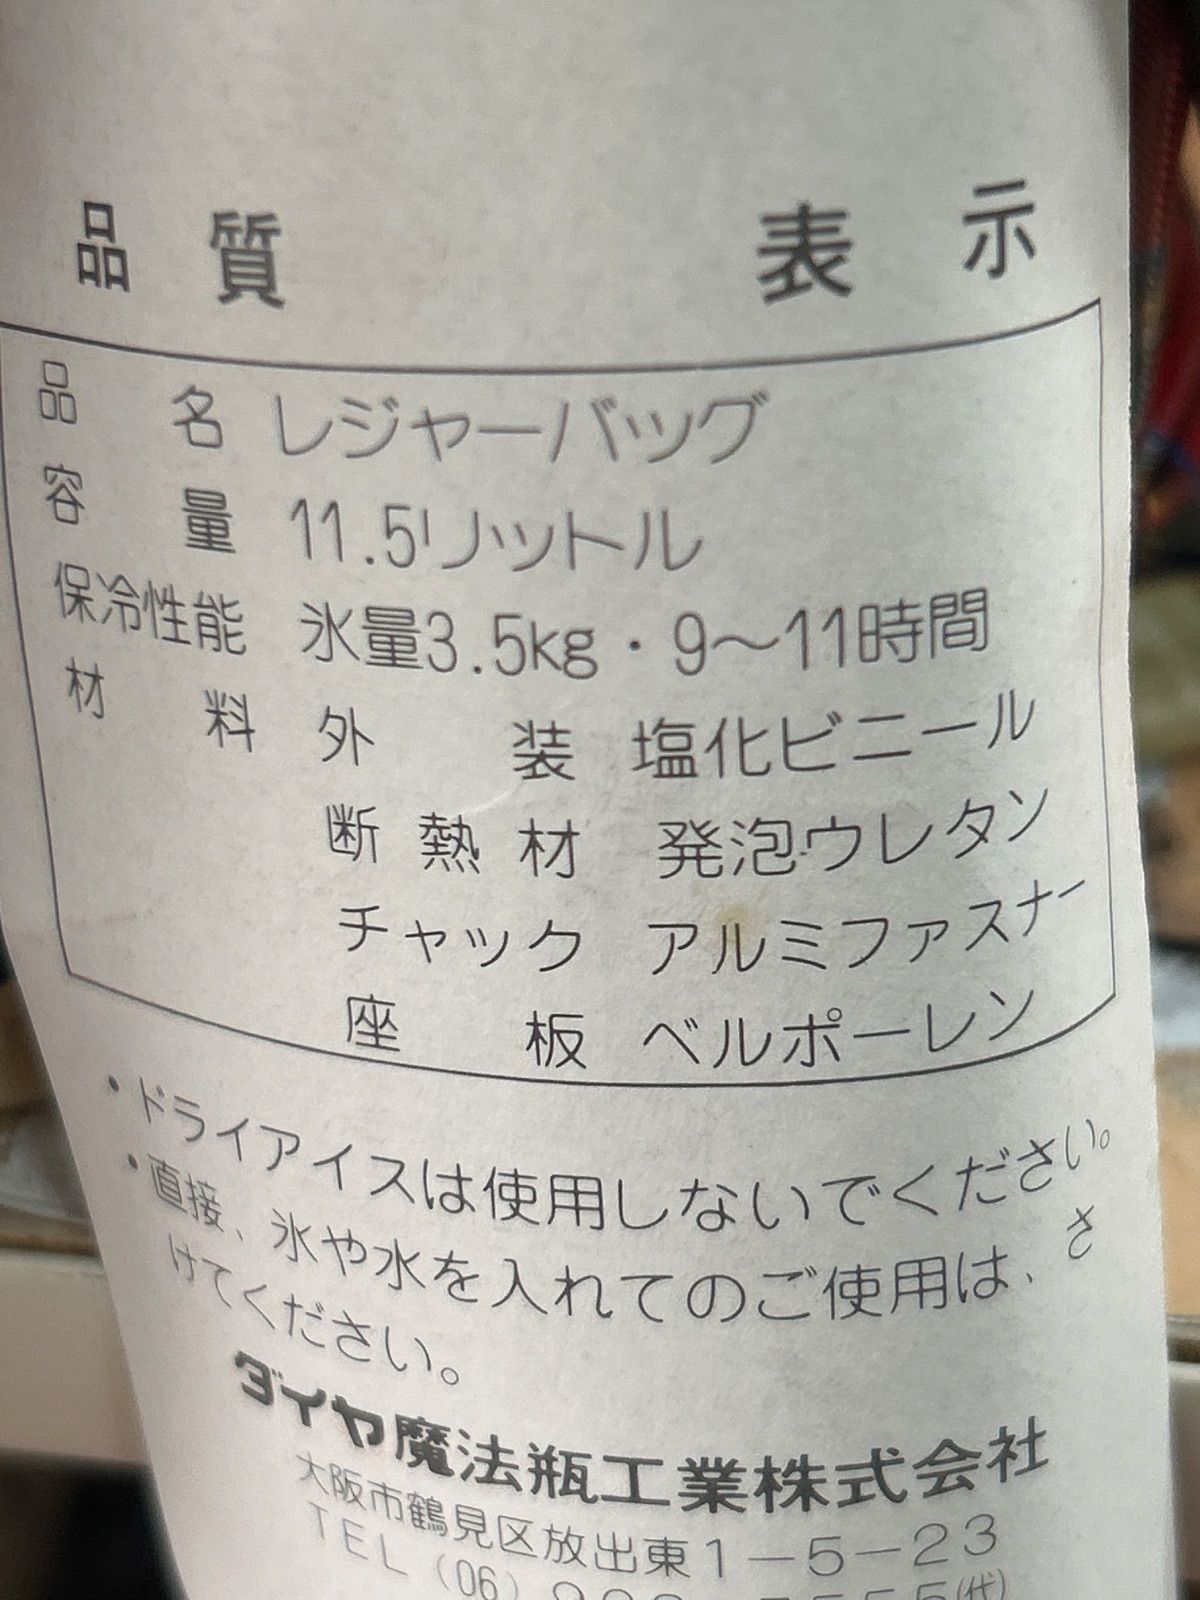 品質表示
品名 レジャーバッグ
容量 11.5リットル
保冷性能 氷量3.5kg・9〜11時間
材料 外装 塩化ビニール
断熱材 発泡ウレタン
チャック アルミファスナー
座板 ベルポーレン
・ドライアイスは使用しないでください。
・直接、氷や水を入れてのご使用は、さ
けてください。
ダイヤ魔法瓶工業株式会社
大阪市鶴見区放出東1−5−23
TEL(06)